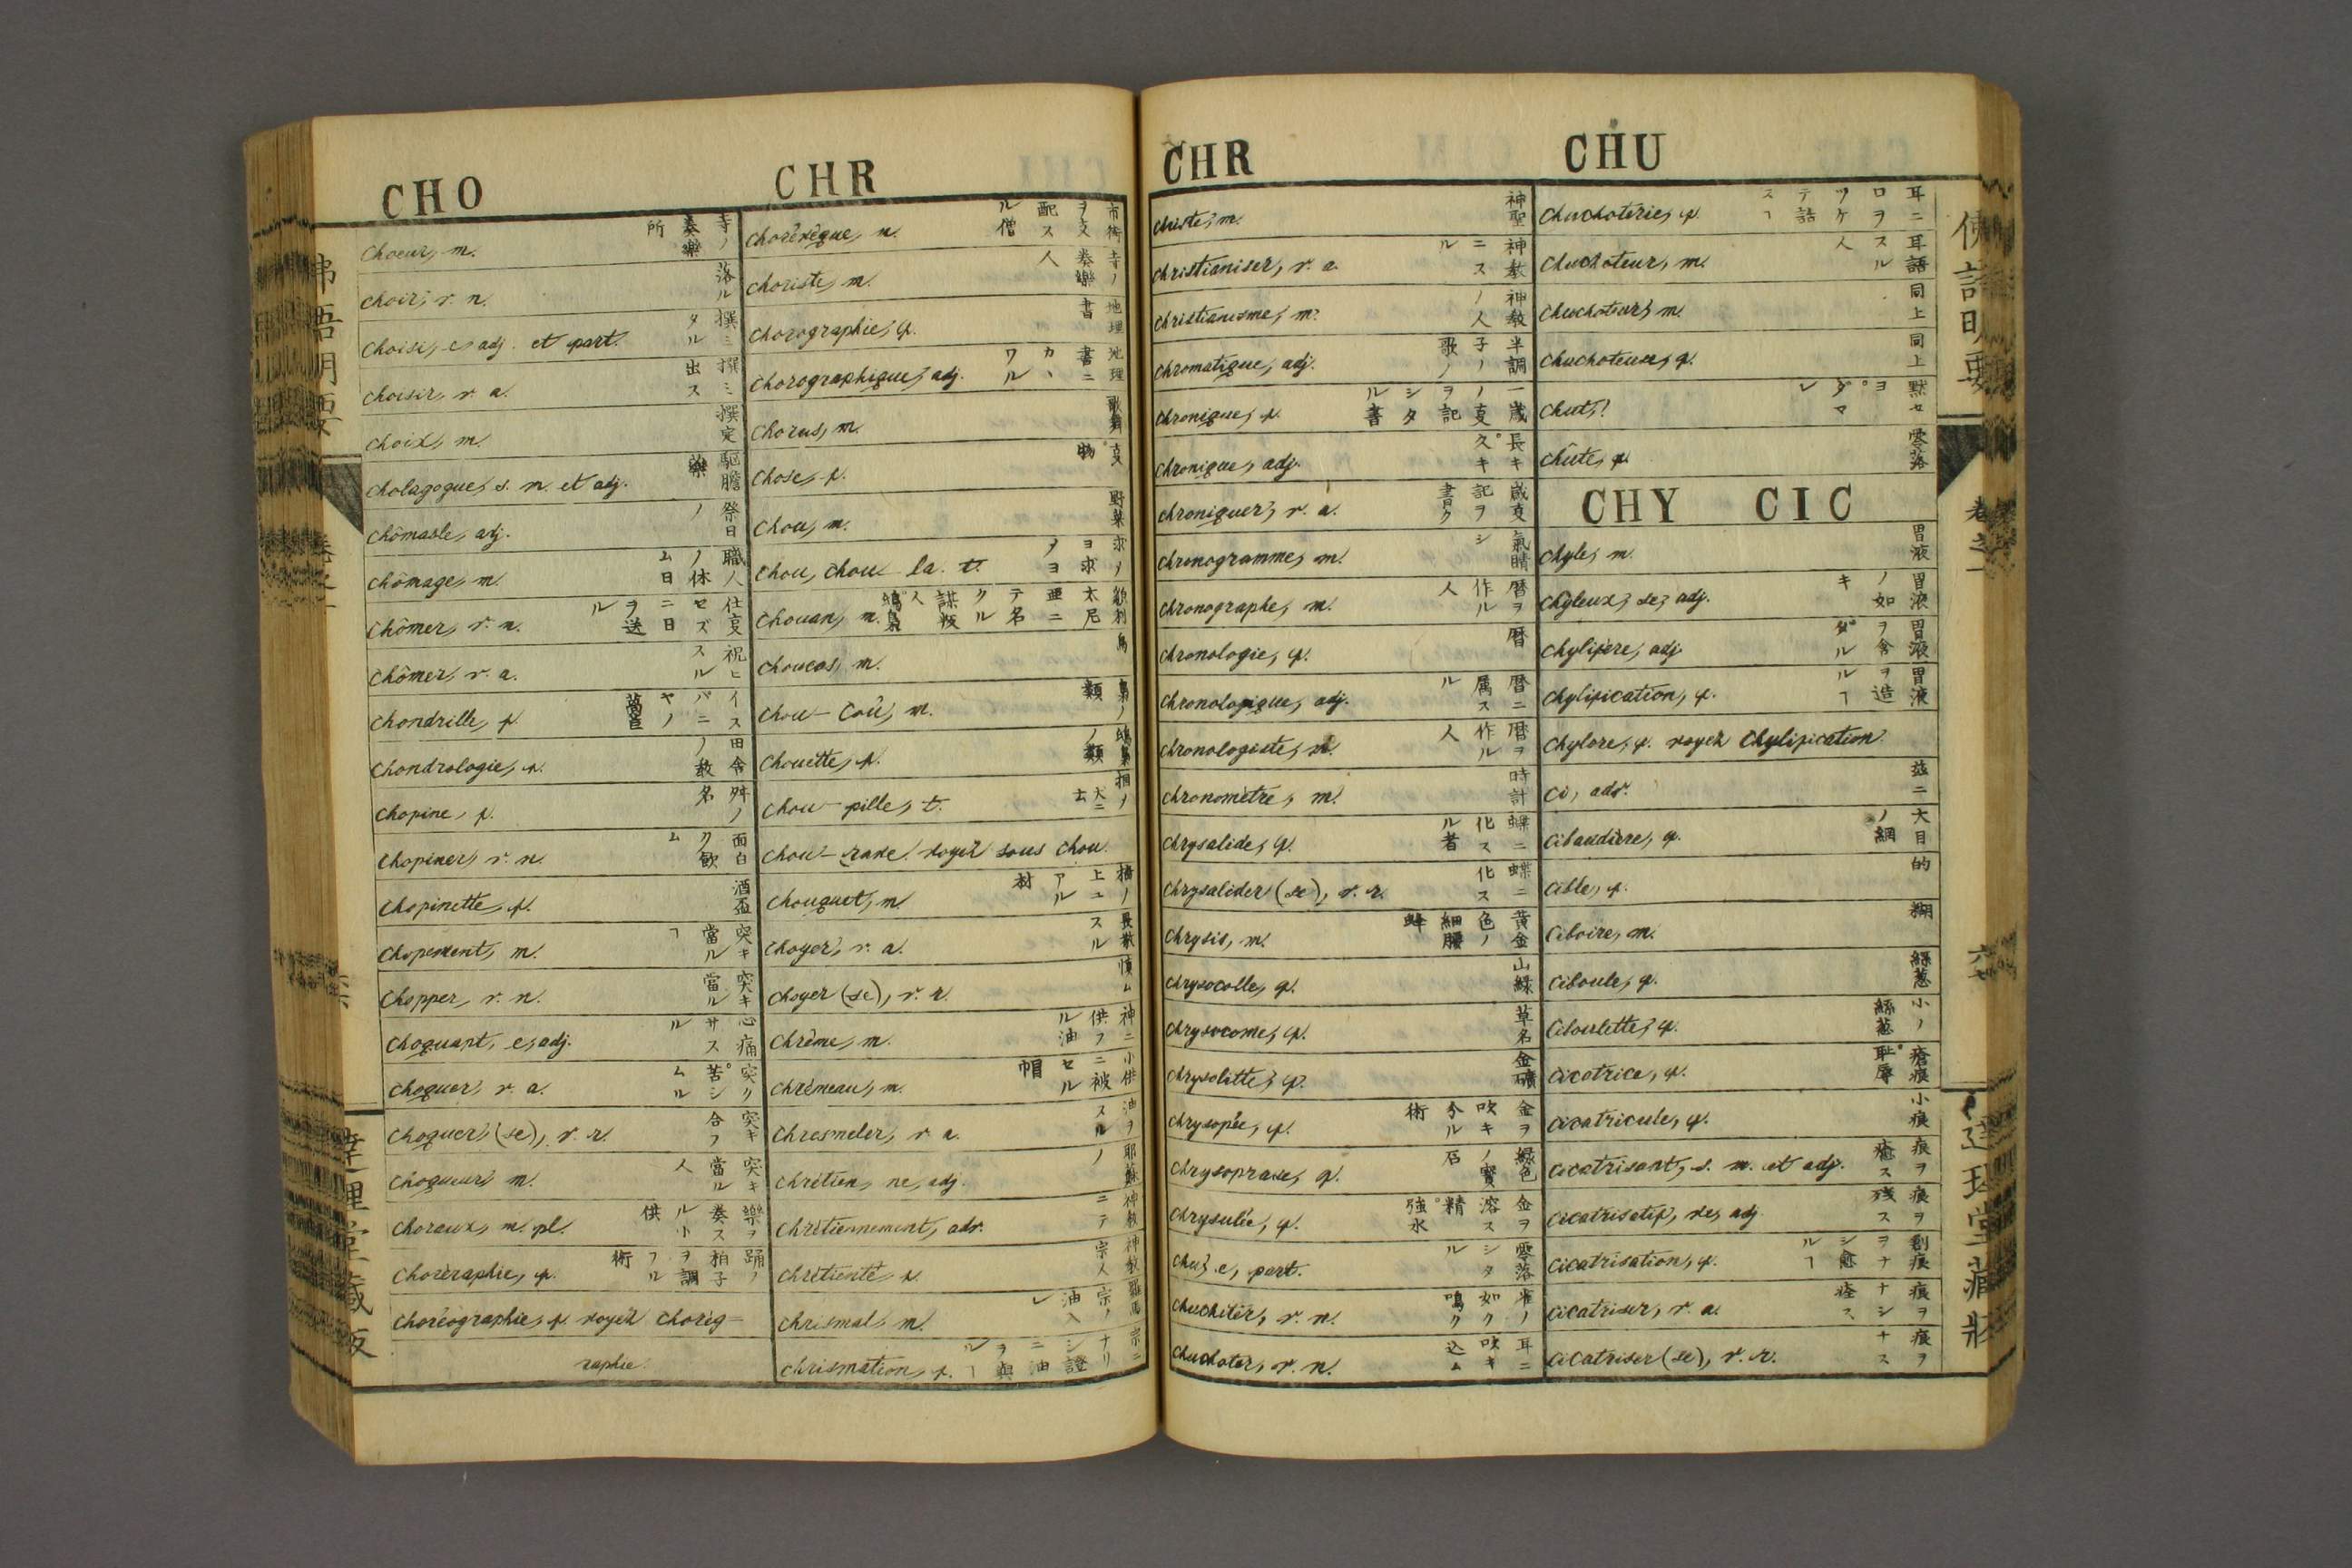 CHO
CHR
Choeur, m. 寺ノ奏樂所
Choir, v. n. 落ル
Choisi, e, adj. et part. 撰ミタル
Choisir, v. a. 撰ミ出ス
Choix, m. 撰定
Cholagogue, s. m. et adj. 駆膽藥
Chômable, adj. 祭日ノ
Chômage, m. 職人ノ休ム日
Chômer, v. n. 仕支セズニ日ヲ送ル
Chômer, v. a. 祝ヒスル
Chondrille, f.
Chondrologie, f.
Chopine, f. 舛ノ名
Chopiner, v. n. 面白ク飲ム
Chopinette, f. 酒盃
Choppement, m. 突キ當ルヿ
Chopper, v. n. 突キ當ル
Choquant, e, adj. 心痛サスル
Choquer, v. a. 突ク。苦シムル
Choquer, (se), v. r. 突キ合フ
Choqueur, m. 突キ當ル人
Choraux, m. pl. 樂ヲ奏スル小供
Chorégraphie, f. 踊ノ拍子ヲ調フル術
Choréographie, f. voyez Chorég-
raphie.
Chorévêque, m.
Choriste, m. 寺ノ奏樂人
Chorographie, f. 地理書
Chorographique, adj. 地理書ニカヽワル
Chorus, m. 歌舞
Chose, f. 支。物
Chou, m. 野菜
Chou, chou-la. t. 求ヨ求ヨ
Chouan, m.
Choucas, m. 鳥
Chou-Coû, m. 梟ノ類
Chouette, f. 鴟梟ノ類
Chou-pille, t.
Chou-rave. voyez sous chou.
Chouquet, m. 檣ノ上ニアル材
Choyer, v. a.
Choyer (se), v. r. 慎ム
Chrême, m. 神ニ供フル油
Chrêmeau, m. 小供ニ被セル帽
Chresmeler, v. a. 油ヲスル
Chrétien, ne, adj. 耶蘇ノ
Chrétiennement, adv. 神教ニテ
Chrétienté, f. 神教宗人
Chrismal, m. 羅馬宗ノ油入レ
Chrismation, f.
CHR
CHU
Christe, m. 神聖
Christianiser, v. a. 神教ニスル
Christianisme, m. 神教ノ人
Chromatique, adj. 半調子ノ歌ノ
Chronique, f. 一歳ノ支ヲ記シタル書
Chronique, adj. 長キ。久キ
Chroniquer, v. a. 歳支記ヲ書ク
Chronogramme, m.
Chronographe, m. 暦ヲ作ル人
Chronologie, f. 暦
Chronologique, adj. 暦ニ属スル
Chronologiste, m. 暦ヲ作ル人
Chronomètre, m. 時計
Chrysalide, f. 蝶ニ化スル者
Chrysalider (se), v. r. 蝶ニ化ス
Chrysis, m. 黄金色ノ細腰蜂
Chrysocolle, f. 山緑
Chrysocome, f. 草名
Chrysolitte, f. 金礦
Chrysopée, f. 金ヲ吹キ分ル術
Chrysoprase, f. 緑色ノ寳石
Chrysulée, f. 金ヲ溶ス精。強水
Chu, e, part. 零落シタル
Chucheter, v. n. 雀ノ如ク鳴ク
Chuchoter, v. n. 耳ニ吹キ込ム
Chuchoterie, f. 耳ニ口ヲツケテ話スヿ
Chuchoteur, m. 耳語スル人
Chuchoteur, m. 同上
Chuchoteuse, f. 同上
Chut,! 黙セヨ。ダマレ
Chûte, f. 零落
CHY CIC
Chyle, m. 胃液
Chyleux, se, adj. 胃液ノ如キ
Chylifère, adj. 胃液ヲ含ダル
Chylification, f. 胃液ヲ造ルヿ
Chylose, f. voyez Chylification.
Ci, adv. 茲ニ
Cibaudière, f. 大目ノ網
Cible, f. 的
Ciboire, m.
Ciboule, f. 絲葱
Ciboulette, f. 小ノ絲葱
Cicatrice, f. 瘡痕。耻辱
Cicatricule, f. 小痕
Cicatrisant, s. m. et adj. 痕ヲ癒ス
Cicatrisatif, ve, adj. 痕ヲ残ス
Cicatrisation, f. 創痕ヲナシ愈ルヿ
Cicatriser, v. a. 痕ヲナシ痊ス
Cicatriser (se), v. r. 痕ヲナス
佛語明要
卷之一
六
達理堂蔵版